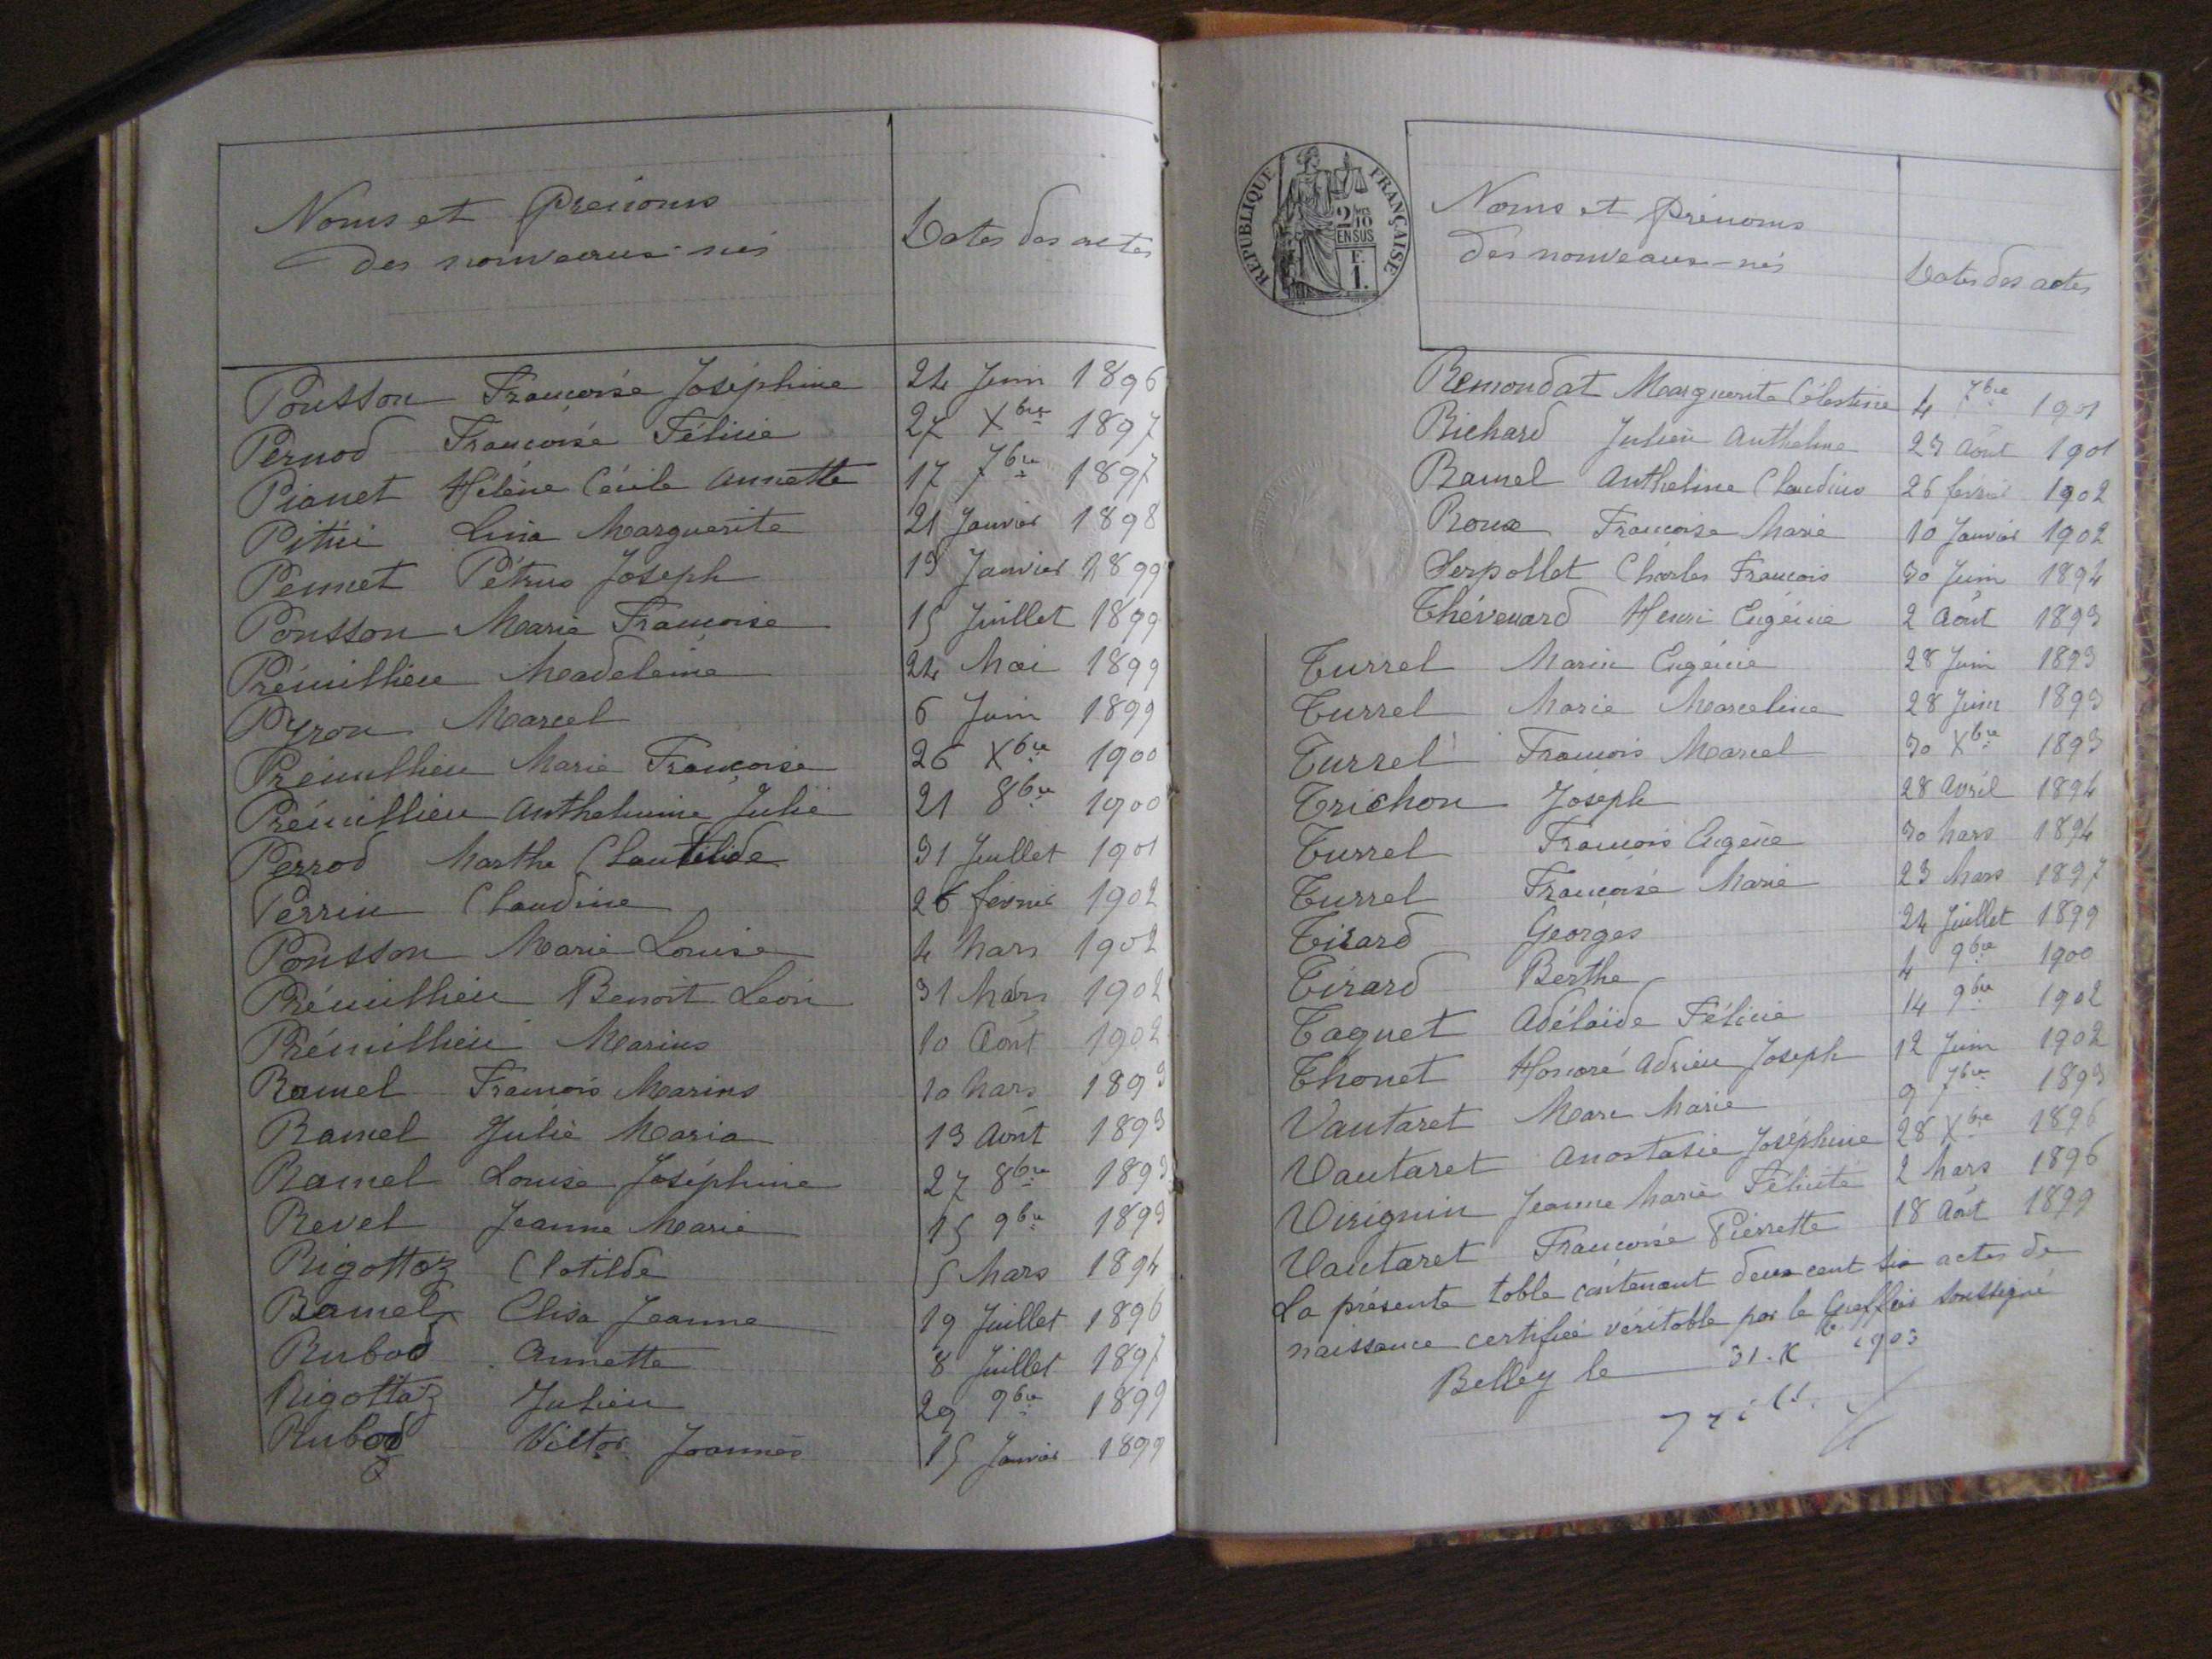 Noms et Prénoms
des nouveaux-nés
Dates des actes
Ponsson Françoise Joséphine 24 Juin 1896
Pernod Françoise Féline 27 Xbre 1897
Pianet Hélène Cécile Annette 17 7bre 1897
Pitui Lina Marguerite 21 Janvier 1898
Pennet Pétrus Joseph 19 Janvier 1899
Ponsson Marie Françoise 15 Juillet 1899
Prémillieu Madeleine 24 Mai 1899
Pyron Marcel 6 Juin 1899
Prémillieu Marie Françoise 26 Xbre 1900
Prémillieu Anthelmine Julie 21 8bre 1900
Perrod Marthe Clautilide 31 Juillet 1901
Perrin Claudine 26 fevrier 1902
Ponsson Marie Louise 4 Mars 1902
Prémillieu Benoit Léon 31 Mars 1902
Prémillieu Marius 10 Août 1902
Ramel François Marius 10 Mars 1893
Ramel Julie Maria 13 Août 1893
Ramel Louise Joséphine 27 8bre 1893
Revel Jeanne Marie 15 9bre 1893
Rigottaz Clotilde 5 Mars 1894
Ramel Elisa Jeanne 19 Juillet 1896
Rubod Annette 8 Juillet 1897
Rigottaz Julien 29 9bre 1899
Rubod Victor Joannès 15 Janvier 1899
REPUBLIQUE FRANÇAISE
2/10
EN SUS
F.
1.
Noms et Prénoms
des nouveaux-nés
Dates des actes
Remondat Marguerite Célestine 4 7bre 1901
Richard Julien Anthelme 23 Août 1901
Ramel Anthelme Claudius 26 fevrier 1902
Roux Françoise Marie 10 Janvier 1902
Serpollet Charles François 30 Juin 1894
Thévenard Henri Eugénie 2 Août 1893
Turrel Marin Eugénie 28 Juin 1893
Turrel Marie Marceline 28 Juin 1893
Turrel François Marcel 30 Xbre 1893
Trichon Joseph 28 Avril 1894
Turrel François Eugène 30 Mars 1894
Turrel Françoise Marie 23 Mars 1897
Tirard Georges 24 Juillet 1899
Tirard Berthe 4 9bre 1900
Taguet Adélaïde Féline 14 9bre 1902
Thonet Honoré Adrien Joseph 12 Juin 1902
Vautaret Marc Marie 9 7bre 1893
Vautaret Anastasie Joséphine 28 Xbre 1896
Virignin Jeanne Marie Félicité 2 Mars 1896
Vautaret Françoise Pierrette 18 Août 1899
La présente table contenant deux cent six actes de
naissance certifiée véritable par le Greffier soussigné
Belley le 31. X 1903